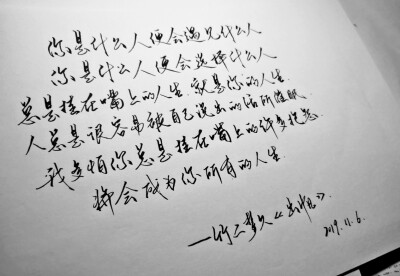 你是什么人便会遇见什么人
你是什么人便会选择什么人
总是挂在嘴上的人生,就是你的人生.
人总是很容易被自己说出的话所催眠
我多怕你总是挂在嘴上的许多抱怨.
将会成为你所有的人生.
2019.11.6.